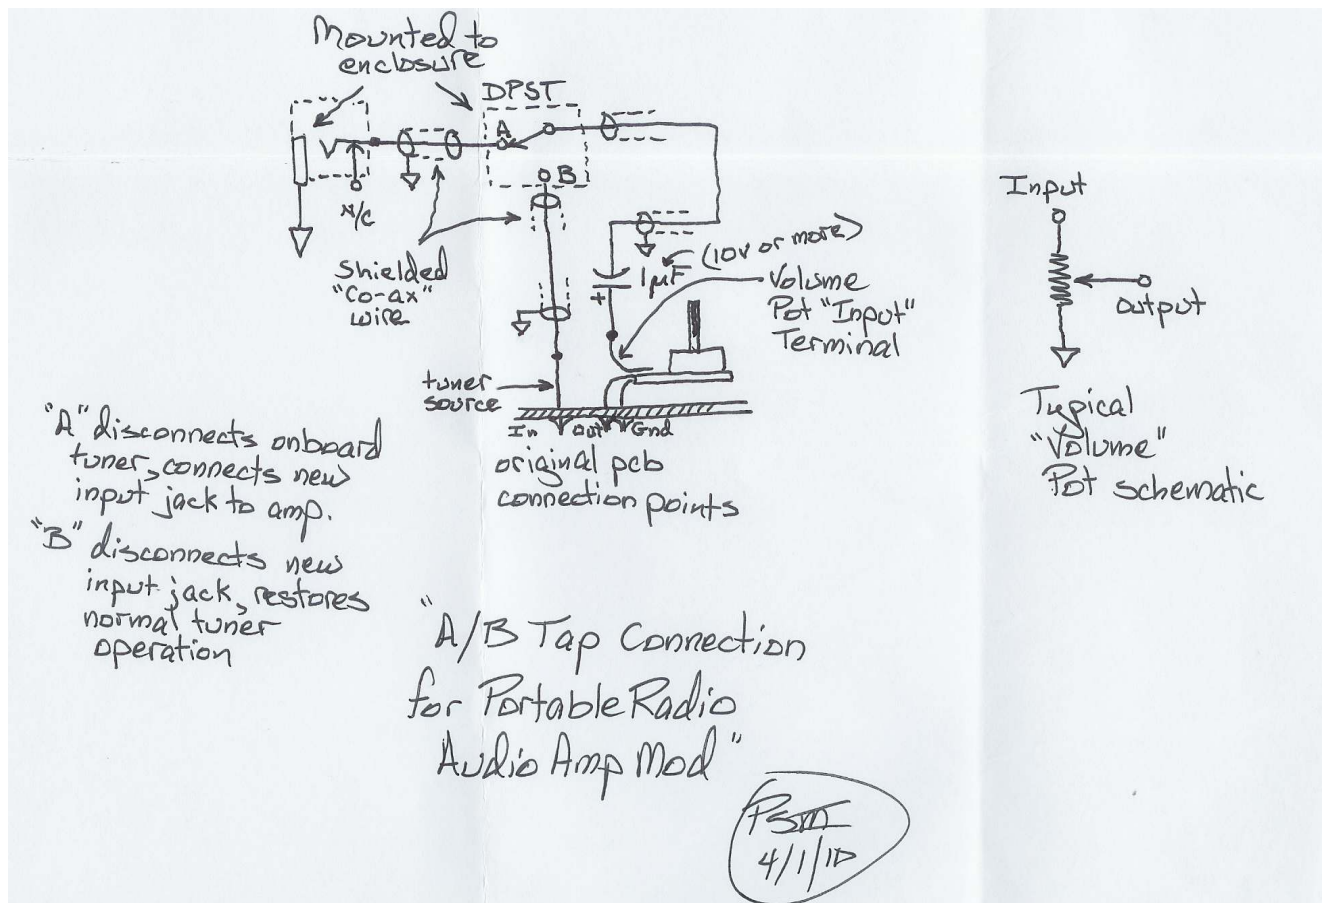 Mounted to
enclosure
DPST
A
B
N/C
shielded
"Co-ax"
wire
1µF
(10v or more)
+
Volume
Pot "Input"
Terminal
tuner
source
In
Out
Gnd
original pcb
connection points
Input
output
Typical
"Volume"
Pot schematic
"A" disconnects onboard
tuner, connects new
input jack to amp.
"B" disconnects new
input jack, restores
normal tuner
operation
"A/B Tap Connection
for Portable Radio
Audio Amp Mod"
4/1/10